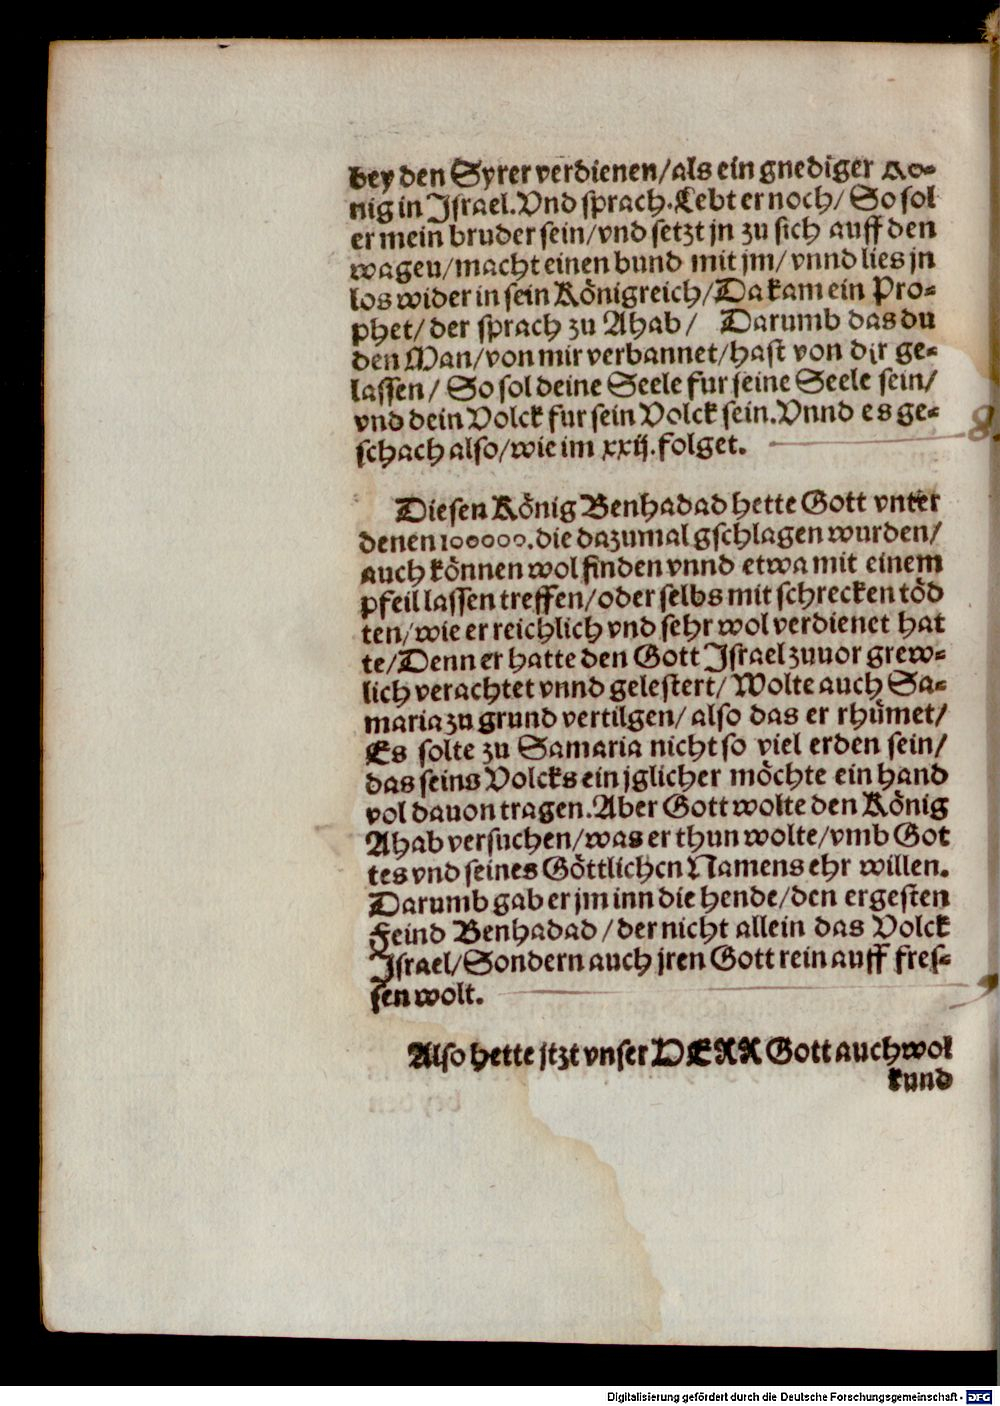 bey den Syrer verdienen/als ein gnediger Ko-
nig in Israel. Vnd sprach. Lebt er noch/ So sol
er mein bruder sein/vnd setzt jn zu sich auff den
wageu/macht einen bund mit jm/ vnnd lies jn
los wider in sein Königreich/Da kam ein Pro-
phet/ der sprach zu Ahab/ Darumb das du
den Man/von mir verbannet/hast von dir ge-
lassen/ So sol deine Seele fur seine Seele sein/
vnd dein Volck fur sein Volck sein. Vnnd es ge-
schach also/wie im xxij. folget.
Diesen König Benhadad hette Gott vnter
denen 100000. die dazumal gschlagen wurden/
auch können wol finden vnnd etwa mit einem
pfeil lassen treffen/oder selbs mit schrecken töd
ten/wie er reichlich vnd sehr wol verdienet hat
te/Denn er hatte den Gott Israel zuuor grew-
lich verachtet vnnd gelestert/ Wolte auch Sa-
maria zu grund vertilgen/ also das er rhümet/
Es solte zu Samaria nicht so viel erden sein/
das seins Volcks ein jglicher möchte ein hand
vol dauon tragen. Aber Gott wolte den König
Ahab versuchen/was er thun wolte/vmb Got
tes vnd seines Göttlichen Namens ehr willen.
Darumb gab er jm inn die hende/den ergesten
Feind Benhadad/der nicht allein das Volck
Israel/Sondern auch jren Gott rein auff fres-
sen wolt.
Also hette jtzt vnser HERR Gott auch wol
kund
Digitalisierung gefördert durch die Deutsche Forschungsgemeinschaft - DFG